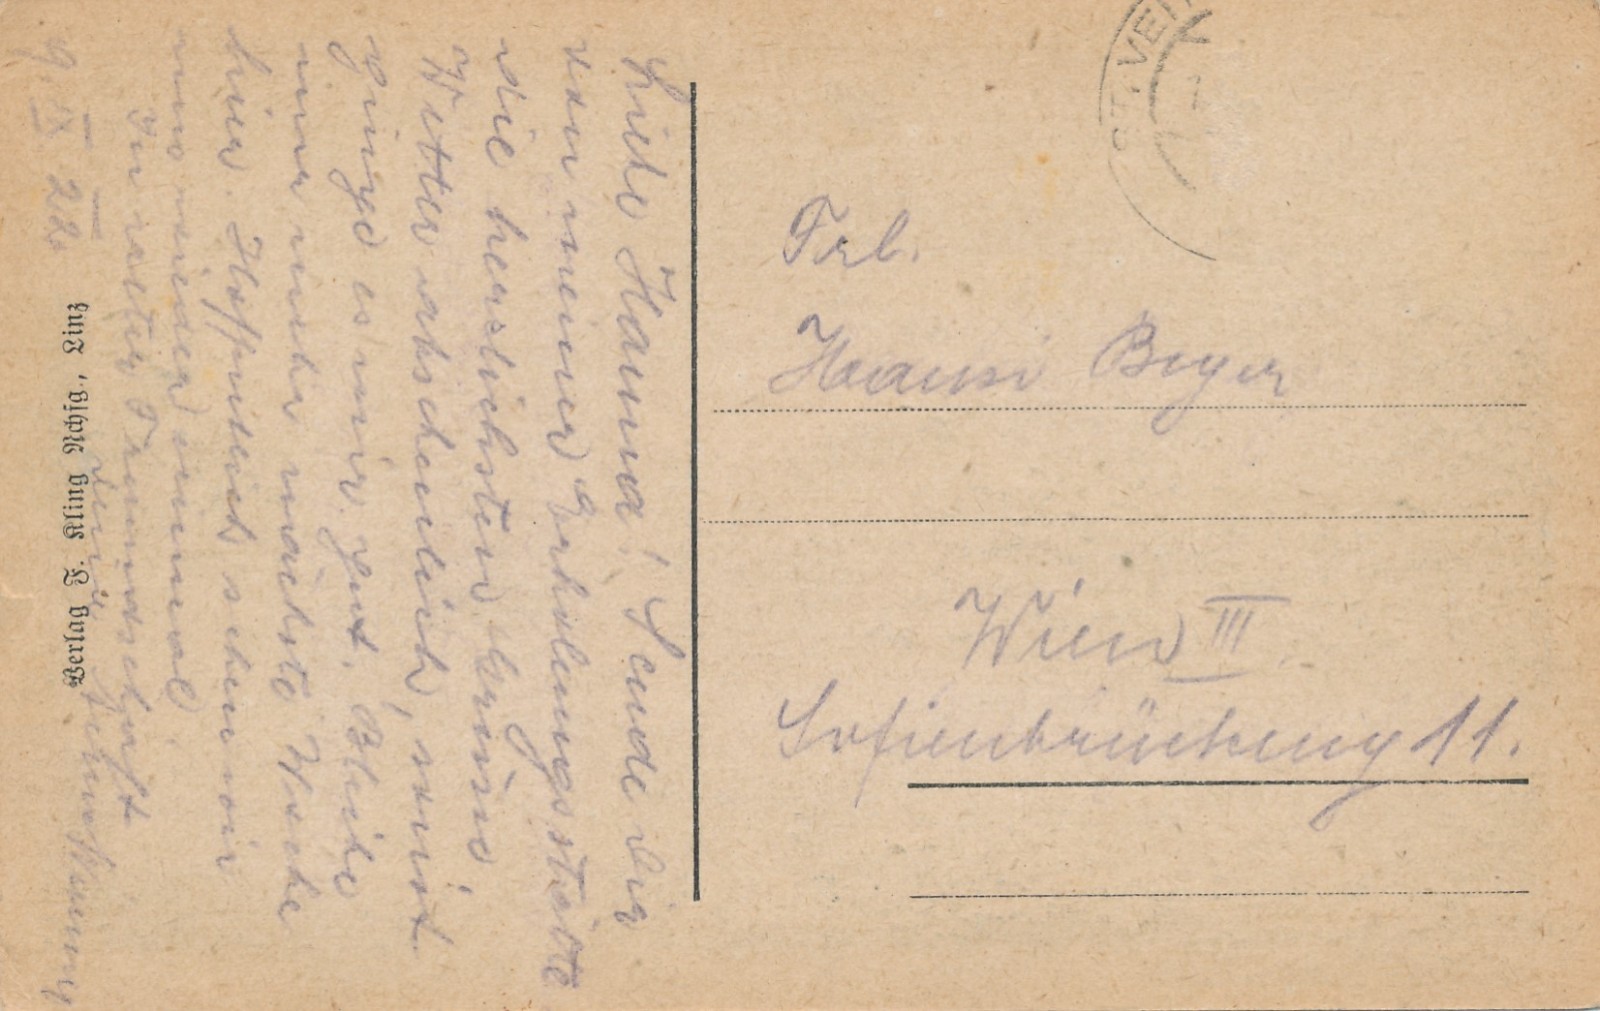 Liebe Hanna! Sende dir
von meiner Erholungsstätte
die herzlichsten Grüße,
Wetter abscheulich, sonst
ginge es mir gut. Bleibe
nur mehr nächste Woche
hier. Hoffentlich sehen wir
uns wieder einmal.
In alter Freundschaft
Deine
9. IX. 22.
Verlag F. Kling Nchfg., Linz
ST. VEI
Frl.
Hansi Beyer
Wien III.
Sofienbrückeng 11.